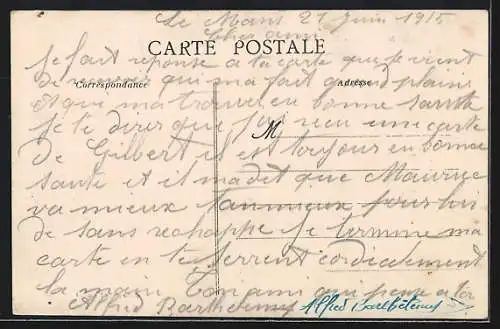 Le Mans 21 Juin 1915
Cher ami
CARTE POSTALE
Je fait reponse a la carte que je vient
Correspondance
Adresse
de recevoir qui ma fait grand plaisir
et que ma trouver en bonne santé
M
Je te direr que jai recu une carte
de Gilbert is est toujour en bonne
sante et il madet que Maurice
va mieux tan mieux pour lui
de sans rechappe Je termine ma
carte en te serrent cordicalement
la main Ton ami qui pense a toi
Alfred Barthelemy
Alfred Barthélemy